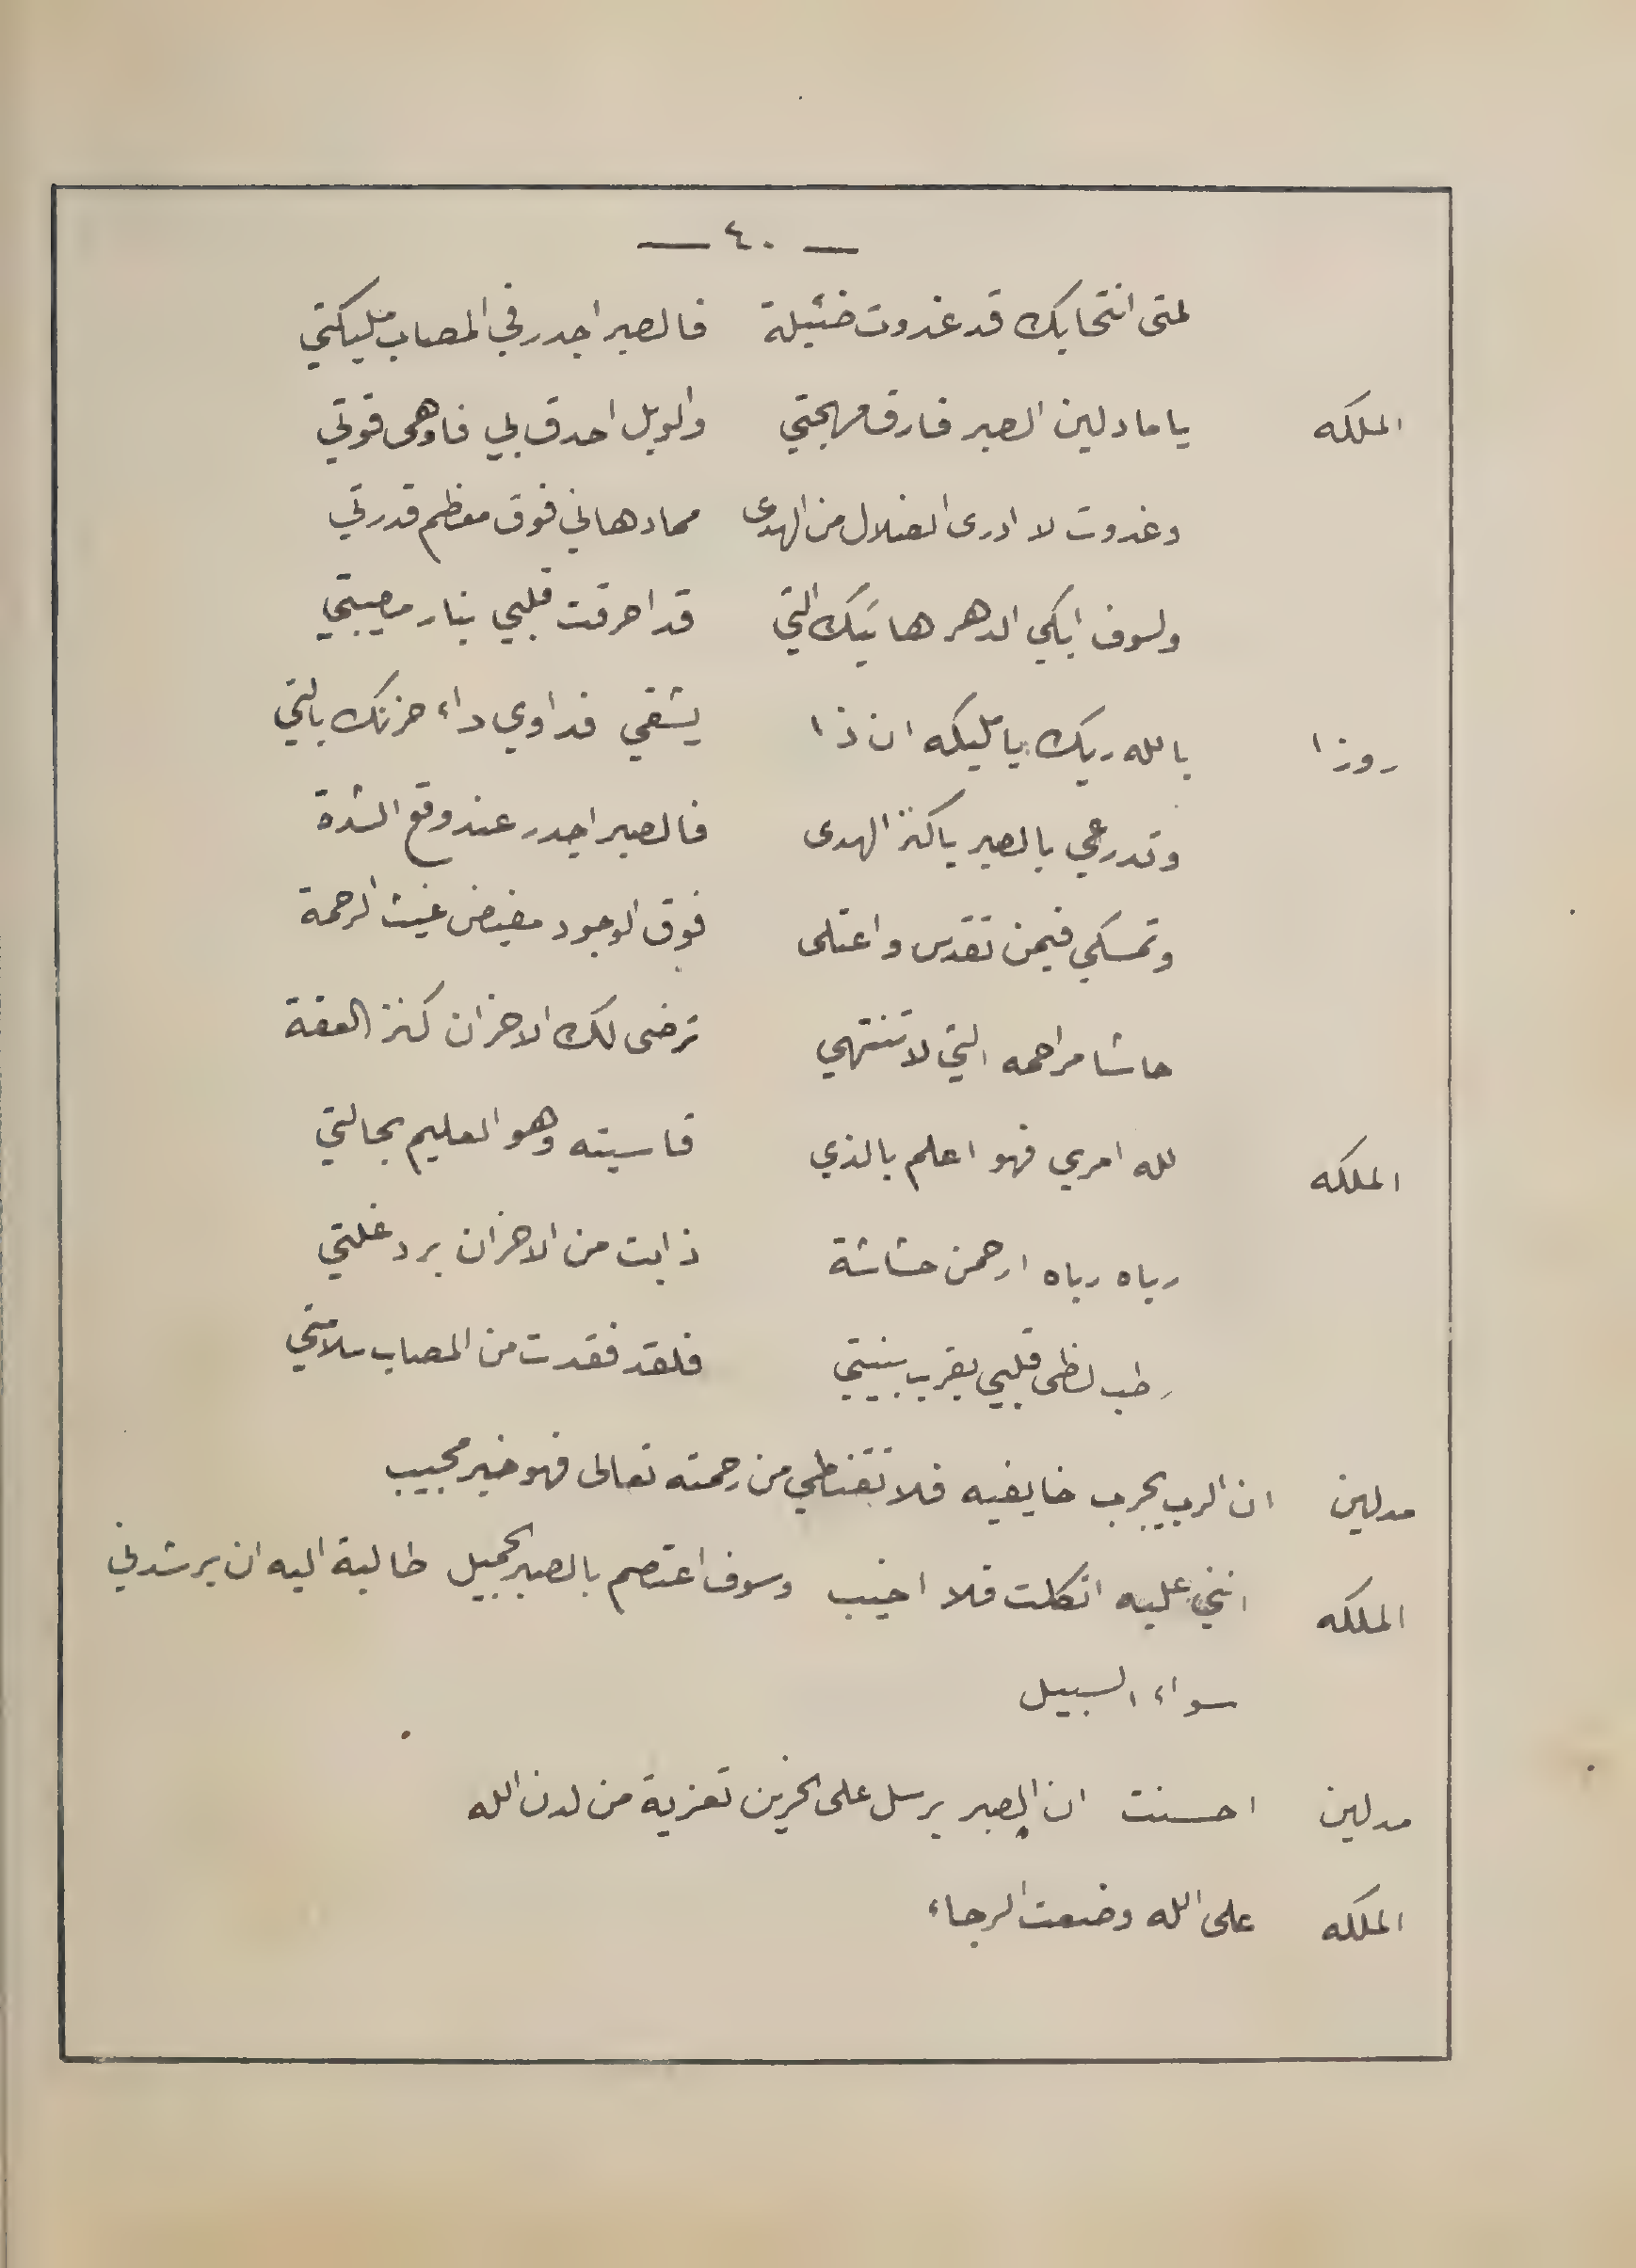 — ٤٠ —
لمتى انتحابك قد غدوت ضئيلة فالصبر اجدر في المصاب مليكتي
الملكه يا مادلين الصبر فارق مهجتي والويل احدق بي فاوهى قوتي
وغدوت لا ادرى الضلال من الهدى مما دهاني فوق معظم قدرتي
ولسوف ابكي الدهر هاتيك التي قد احرقت قلبي بنار مصيبتي
روزا بالله ربك يا مليكه ان ذا يشقي فداوي داء حزنك بالتي
وتدرعي بالصبر يا كنز الهدى فالصبر اجدر عند وقع الشدة
وتمسكي فيمن تقدس واعتلى فوق الوجود مفيض غيث الرحمة
حاشا مراحمه التي لا تنتهي ترضى لك الاحزان كنز العفة
الملكه لله امري فهو اعلم بالذي قاسيته وهو العليم بحالتي
رباه رباه ارحمن حشاشة ذابت من الاحزان برد غلتي
رطب لظى قلبي بقرب بنيتي فلقد فقدت من المصاب سلامتي
مدلين ان الرب يجرب خايفيه فلا تقنطي من رحمته تعالى فهو خير مجيب
الملكه انني عليه اتكلت فلا اخيب وسوف اعتصم بالصبر الجميل طالبة اليه ان يرشدني
سواء السبيل
مدلين احسنت ان الصبر يرسل على الحزين تعزية من لدن الله
الملكه على الله وضعت الرجاء